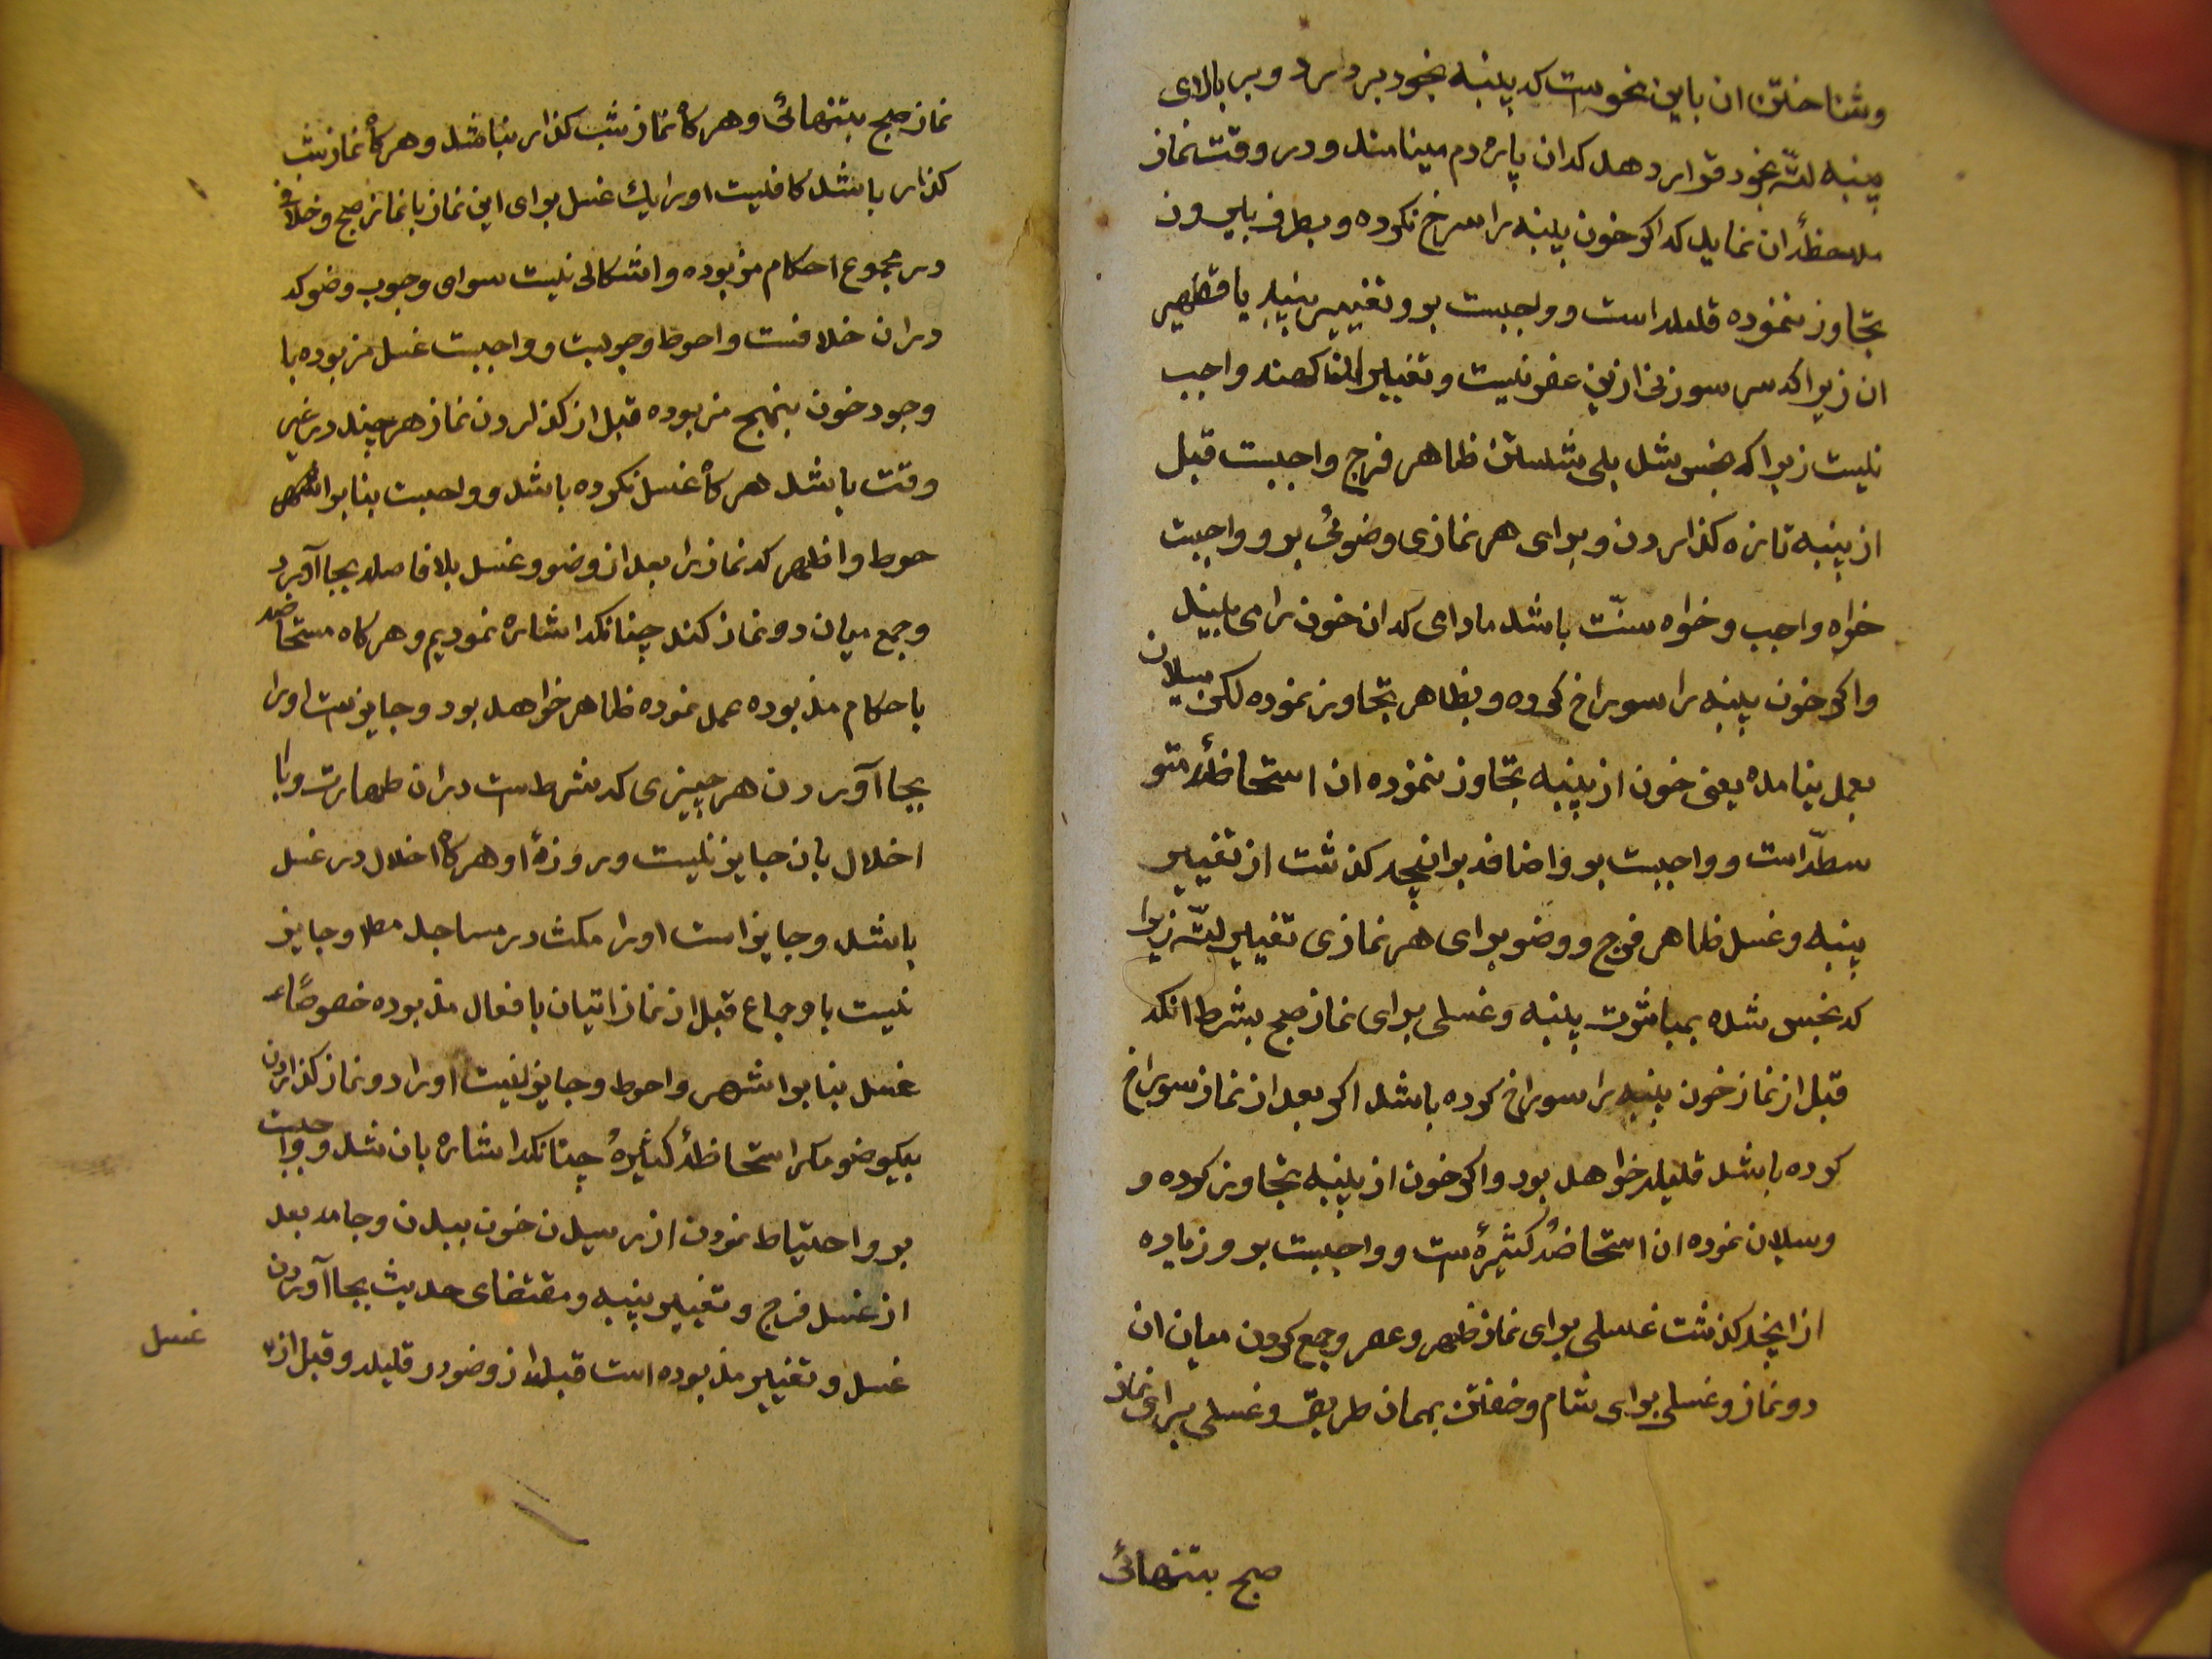 وشناختن ان باین نحوست که پنبه بخود بردارد و بر بالای
پنبه لتّه بخود قرار دهد که ان پاره دم مینامند و در وقت نماز
ملاحظهٔ ان نماید که اکر خون پنبه را سرخ نکرده و بطرف بیرون
تجاوز ننموده قلیله است و واجبست بر و تغییر پنبه یا تطهیر
ان زیرا که سر سوزنی ازین عفو نیست و تغییر لته واجب
نیست زیرا که نجس نشد بلی شستن ظاهر فرج واجبست قبل
از پنبه تازه کذاردن و برای هر نمازی وضوئی بر و واجبست
خواه واجب و خواه سنّت باشد مادامی که ان خون را می بیند
واکر خون پنبه را سوراخ کرده و بظاهر تجاوز نموده لکن سیلان
بعمل نیامده یعنی خون از پنبه تجاوز ننموده ان استحاظهٔ متو
سطّه است و واجبست بر و اضافه برانچه کذشت از تغییر
پنبه و غسل ظاهر فرج و وضو برای هر نمازی تغییر لتّه زیرا
که نجس شده بمباشرت پنبه و غسلی برای نماز صبح بشرط انکه
قبل از نماز خون پنبه را سوراخ کرده باشد اکر بعد از نماز سوراخ
کرده باشد قلیله خواهد بود واکر خون از پنبه تجاوز کرده و
وسیلان نموده ان استحاضهٔ کثیرهٔ است و واجبست بر و زیاده
از اینچه کذشت غسلی برای نماز ظهر و عصر و جمع کردن میان ان
دو نماز و غسلی برای شام و خفتن بهمان طریق و غسلی برای نماز
صبح بتنهائی
نماز صبح بتنهائی و هرکاه نماز شب کذار نباشد و هرکاه نماز شب
کذار باشد کافیست اورا یك غسل برای این نماز با نماز صبح و خلافی
در مجموع احکام مزبوره و اشکالی نیست سوای وجوب وضو که
دران خلافست و احوط وجوبست و واجبست غسل مزبوره با
وجود خون بنهج مزبوره قبل از کذاردن نماز هر چند در غیر
وقت باشد هرکاه غسل نکرده باشد و واجبست بنا بر اشهر
حوط و اظهر که نماز را بعد از وضو و غسل بلا فاصله بجا آورد
و جمع میان دو نماز کند چنانکه اشاره نمودیم و هرکاه مستحاضه
باحکام مذبوره عمل نموده ظاهر خواهد بود و جایزست اورا
بجا آوردن هر چیزی که شرطست دران طهارت و با
اخلال بان جایز نیست و روزهٔ او هرکاه اخلال در غسل
باشد و جایز است اورا مکث در مساجد مط و جایز
نیست با و جماع قبل از نماز اتیان بافعال مذبوره خصوصًا
غسل بنا بر اشهر و احوط و جایز نیست اورا دو نماز کذاردن
بیکوضو مکر استحاظهٔ کثیرهٔ چنانکه اشاره بان شد و واجبست
بر و احتیاط نمودن از رسیدن خون ببدن و جامه بعد
از غسل فرج و تغییر پنبه و مقتضای حدیث بجا آوردن
غسل و تغییر مذبوره است قبل از وضو در قلیله و قبل از
غسل